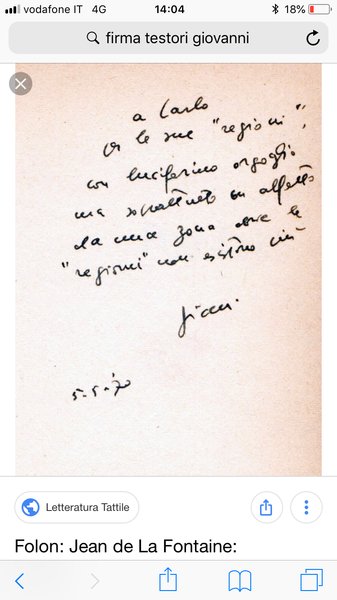 vodafone IT 4G 14:04 18%
firma testori giovanni
a Carlo
e le sue "regioni",
con luciferino orgoglio
ma soprattutto con affetto
da una zona dove le
"regioni" non esistono più
Gianni
5-5-'70
Letteratura Tattile
Folon: Jean de La Fontaine: